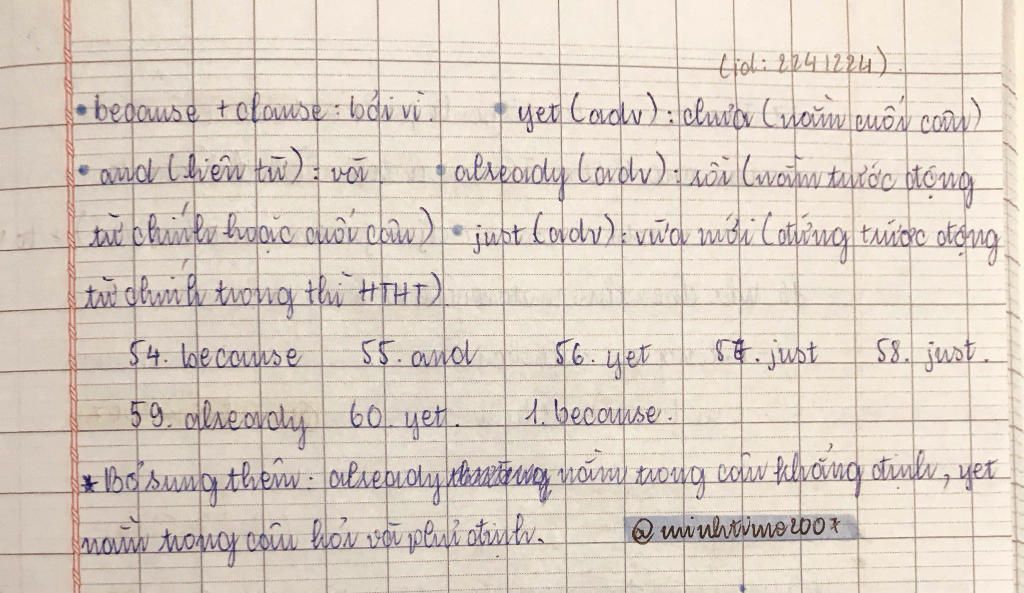 (id: 2241224).
• because + clause: bởi vì. • yet (adv): chưa (nằm cuối câu)
• and (liên từ): và • already (adv): rồi (nằm trước động
từ chính hoặc cuối câu) • just (adv): vừa mới (đứng trước động
từ chính trong thì HTHT)
54. because 55. and 56. yet 57. just 58. just.
59. already 60. yet. 1. because.
* Bổ sung thêm: already nằm trong câu khẳng định, yet
nằm trong câu hỏi và phủ định.
@minhtime2007